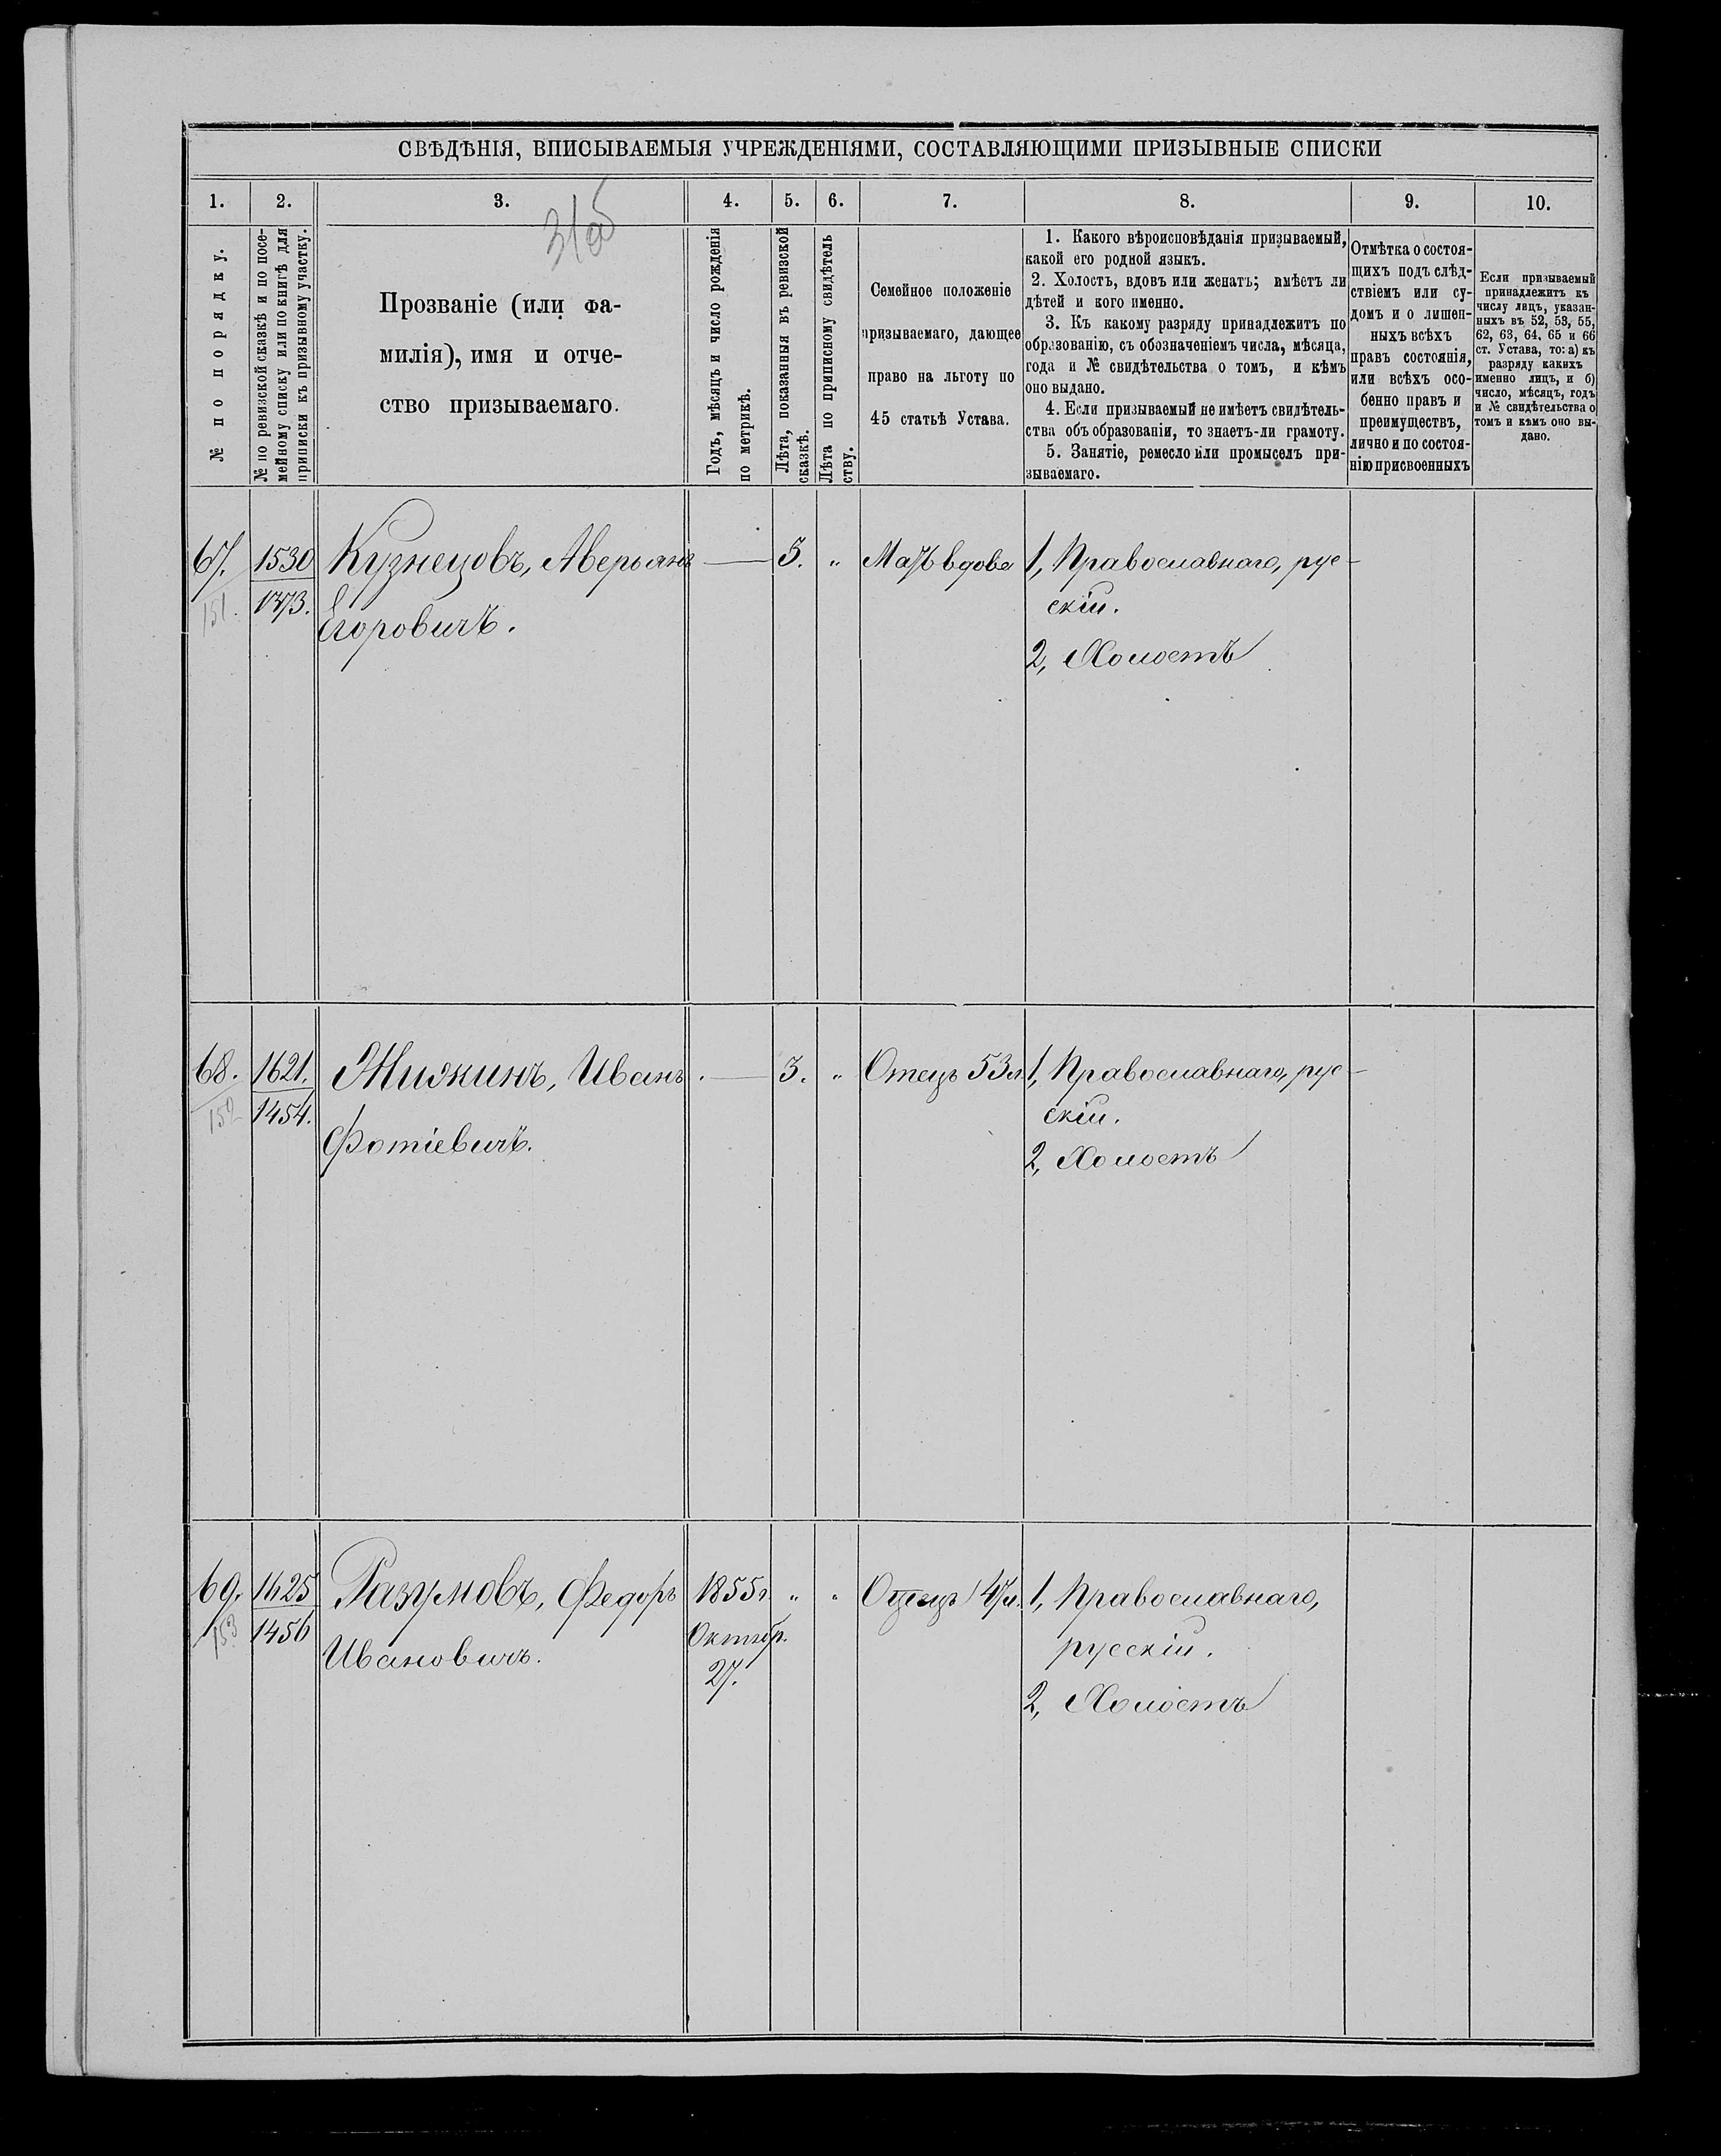 СВѢДѢНІЯ, ВПИСЫВАЕМЫЯ УЧРЕЖДЕНІЯМИ, СОСТАВЛЯЮЩИМИ ПРИЗЫВНЫЕ СПИСКИ
1. 2. 3. 4. 5. 6. 7. 8. 9. 10.
31об
№ по порядку.
№ по ревизской сказкѣ и по посе-
мейному списку или по книгѣ для
приписки къ призывному участку.
Прозваніе (или фа-
милія), имя и отче-
ство призываемаго.
Годъ, мѣсяцъ и число рожденія
по метрикѣ.
Лѣта, показанныя въ ревизской
сказкѣ.
Лѣта по приписному свидѣтель
ству.
Семейное положеніе
призываемаго, дающее
право на льготу по
45 статьѣ Устава.
1. Какого вѣроисповѣданія призываемый,
какой его родной языкъ.
2. Холостъ, вдовъ или женатъ; имѣетъ ли
дѣтей и кого именно.
3. Къ какому разряду принадлежитъ по
образованію, съ обозначеніемъ числа, мѣсяца,
года и № свидѣтельства о томъ, и кѣмъ
оно выдано.
4. Если призываемый не имѣетъ свидѣтель-
ства объ образованіи, то знаетъ-ли грамоту.
5. Занятіе, ремесло или промыселъ при-
зываемаго.
Отмѣтка о состоя-
щихъ подъ слѣд-
ствіемъ или су-
домъ и о лишен-
ныхъ всѣхъ
правъ состоянія,
или всѣхъ осо-
бенно правъ и
преимуществъ,
лично и по состоя-
нію присвоенныхъ
Если призываемый
принадлежитъ къ
числу лицъ, указан-
ныхъ въ 52, 53, 55,
62, 63, 64, 65 и 66
ст. Устава, то: а) къ
разряду какихъ
именно лицъ, и б)
число, мѣсяцъ, годъ
и № свидѣтельства о
томъ и кѣмъ оно вы-
дано.
67. 1530 Кузнецовъ, Аверьянъ — 5. „ Мать вдова 1, Православнаго, рус-
151. 1373. Егоровичъ. скій.
2, Холостъ
68. 1621. Жижинъ, Иванъ. — 3. „ Отецъ 53 л. 1, Православнаго, рус-
152 1454. Фотіевичъ. скій.
2, Холостъ
69. 1425 Разумовъ, Федоръ 1855 г. „ „ Отецъ 47 л. 1, Православнаго,
153 1456 Ивановичъ. Октябр. русскій.
27.
2, Холостъ